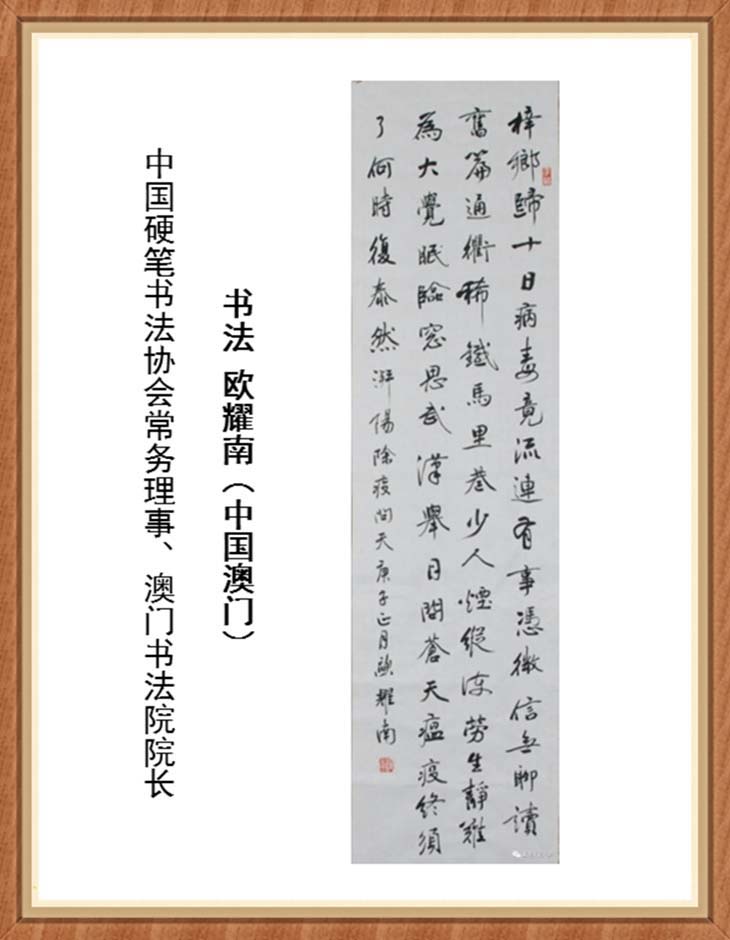 梓鄉歸十日病毒竟流連有事憑微信無聊讀
舊篇通衢稀鐵馬里巷少人煙縱勞生靜難
為大覺眠臨窓思武漢舉目問蒼天瘟疫終須
了何時復泰然除疫問天庚子正月歐耀南
书法 欧耀南（中国澳门）
中国硬笔书法协会常务理事、澳门书法院院长